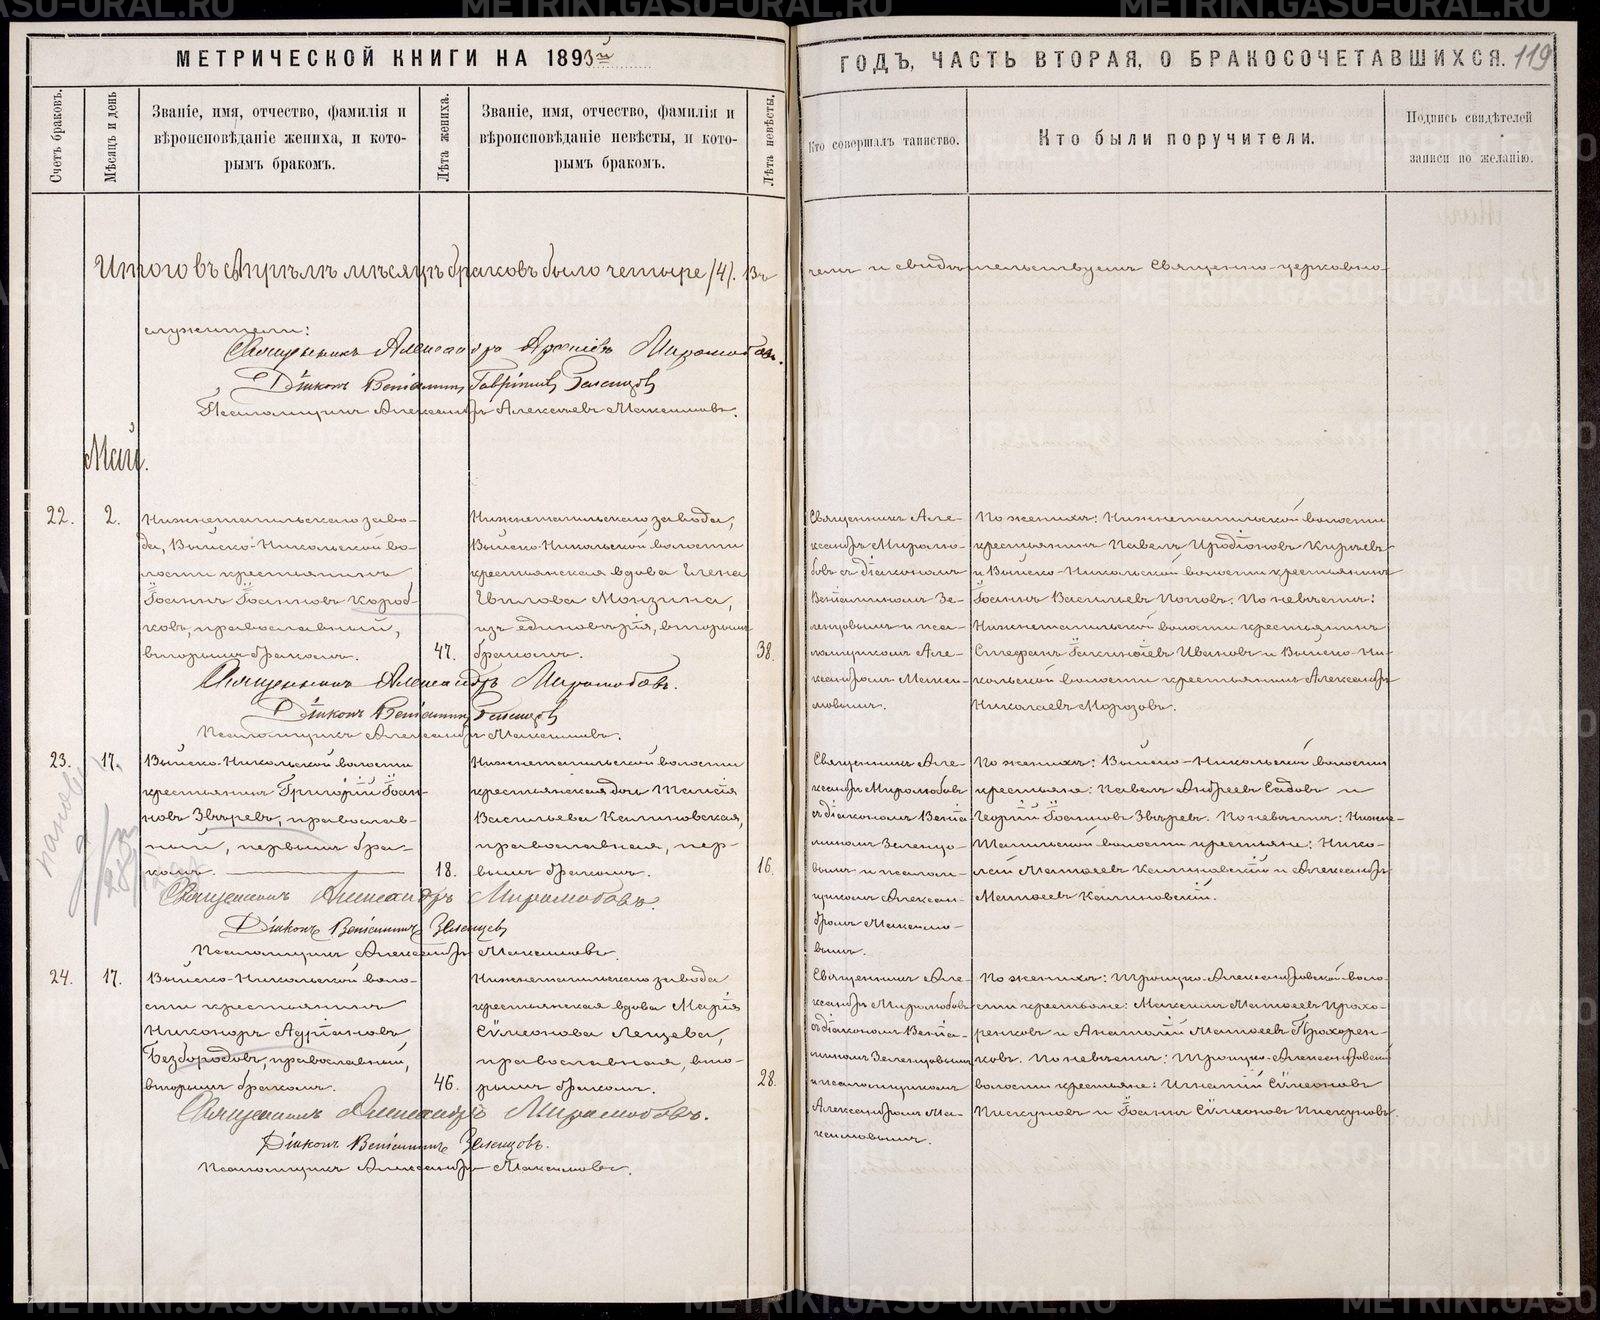 МЕТРИЧЕСКОЙ КНИГИ НА 1893й
ГОДЪ, ЧАСТЬ ВТОРАЯ, О БРАКОСОЧЕТАВШИХСЯ. 119
Счетъ браковъ.
Мѣсяцъ и день
Званіе, имя, отчество, фамилія и
вѣроисповѣданіе жениха, и кото-
рымъ бракомъ.
Лѣта жениха.
Званіе, имя, отчество, фамилія и
вѣроисповѣданіе невѣсты, и кото-
рымъ бракомъ.
Лѣта невѣсты.
Кто совершалъ таинство.
Кто были поручители.
Подпись свидѣтелей
записи по желанію.
Итого въ Апрѣлѣ мѣсяцѣ браковъ было четыре /4/. Въ
чемъ и свидѣтельствуемъ Священно-церковно-
служители:
Священникъ Александръ Миролюбовъ.
Діаконъ Веніаминъ Гавріиловъ Зеленцовъ
Псаломщикъ Александръ Алексѣевъ Максимовъ.
Май.
22.
2.
Нижнетагильскаго заво-
да, Выйско-Никольской во-
лости крестьянинъ
Іоаннъ Іоанновъ Короб-
ковъ, православный,
вторымъ бракомъ.
47.
Нижнетагильскаго завода,
Выйско-Никольской волости
крестьянская вдова Елена
Монзина,
изъ единовѣрія, вторымъ
бракомъ.
38.
Священникъ Але-
ксандръ Миролю-
бовъ съ діакономъ
Веніаминомъ Зе-
ленцовымъ и пса-
ломщикомъ Але-
ксандромъ Макси-
мовымъ.
По женихѣ: Нижнетагильской волости
крестьянинъ Павелъ Иродіоновъ Киряевъ
и Выйско-Никольской волости крестьянинъ
Іоаннъ Васильевъ Поповъ. По невѣстѣ:
Нижнетагильской волости крестьянинъ
Стефанъ Іакинѳіевъ Ивановъ и Выйско-Ни-
кольской волости крестьянинъ Александръ
Николаевъ Морозовъ.
Священникъ Александръ Миролюбовъ.
Діаконъ Веніаминъ Зеленцовъ
Псаломщикъ Александръ Максимовъ.
23.
17.
Выйско-Никольской волости
крестьянинъ Григорій Іоан-
новъ Звѣревъ, православ-
ный, первымъ бра-
комъ.
18.
Нижнетагильской волости
крестьянская дочь Таисія
Васильева Калиновская,
православная, пер-
вымъ бракомъ.
16.
Священникъ Але-
ксандръ Миролюбовъ
съ діакономъ Веніа-
миномъ Зеленцо-
вымъ и псалом-
щикомъ Алексан-
дромъ Максимо-
вымъ.
По женихѣ: Выйско-Никольской волости
крестьяне: Павелъ Андреевъ Садовъ и
Георгій Іоанновъ Звѣревъ. По невѣстѣ: Нижне-
Тагильской волости крестьяне: Нико-
лай Матѳеевъ Калиновскій и Александръ
Матѳеевъ Калиновскій.
Священникъ Александръ Миролюбовъ.
Діаконъ Веніаминъ Зеленцовъ
Псаломщикъ Александръ Максимовъ.
24.
17.
Выйско-Никольской воло-
сти крестьянинъ
Никоноръ Адріановъ
Безбородовъ, православный,
вторымъ бракомъ.
46.
Нижнетагильскаго завода
крестьянская вдова Марія
Сѵмеонова Лещева,
православная, вто-
рымъ бракомъ.
28.
Священникъ Але-
ксандръ Миролюбовъ
съ діакономъ Веніа-
миномъ Зеленцовымъ
и псаломщикомъ
Александромъ Ма-
ксимовымъ.
По женихѣ: Троицко-Александровской воло-
сти крестьяне: Максимъ Матѳеевъ Прохо-
ренковъ и Анатолій Матѳеевъ Прохорен-
ковъ. По невѣстѣ: Троицко-Александровской
волости крестьяне: Игнатій Сѵмеоновъ
Пискуновъ и Іоаннъ Сѵмеоновъ Пискуновъ.
Священникъ Александръ Миролюбовъ.
Діаконъ Веніаминъ Зеленцовъ.
Псаломщикъ Александръ Максимовъ.
METRIKI.GASO-URAL.RU